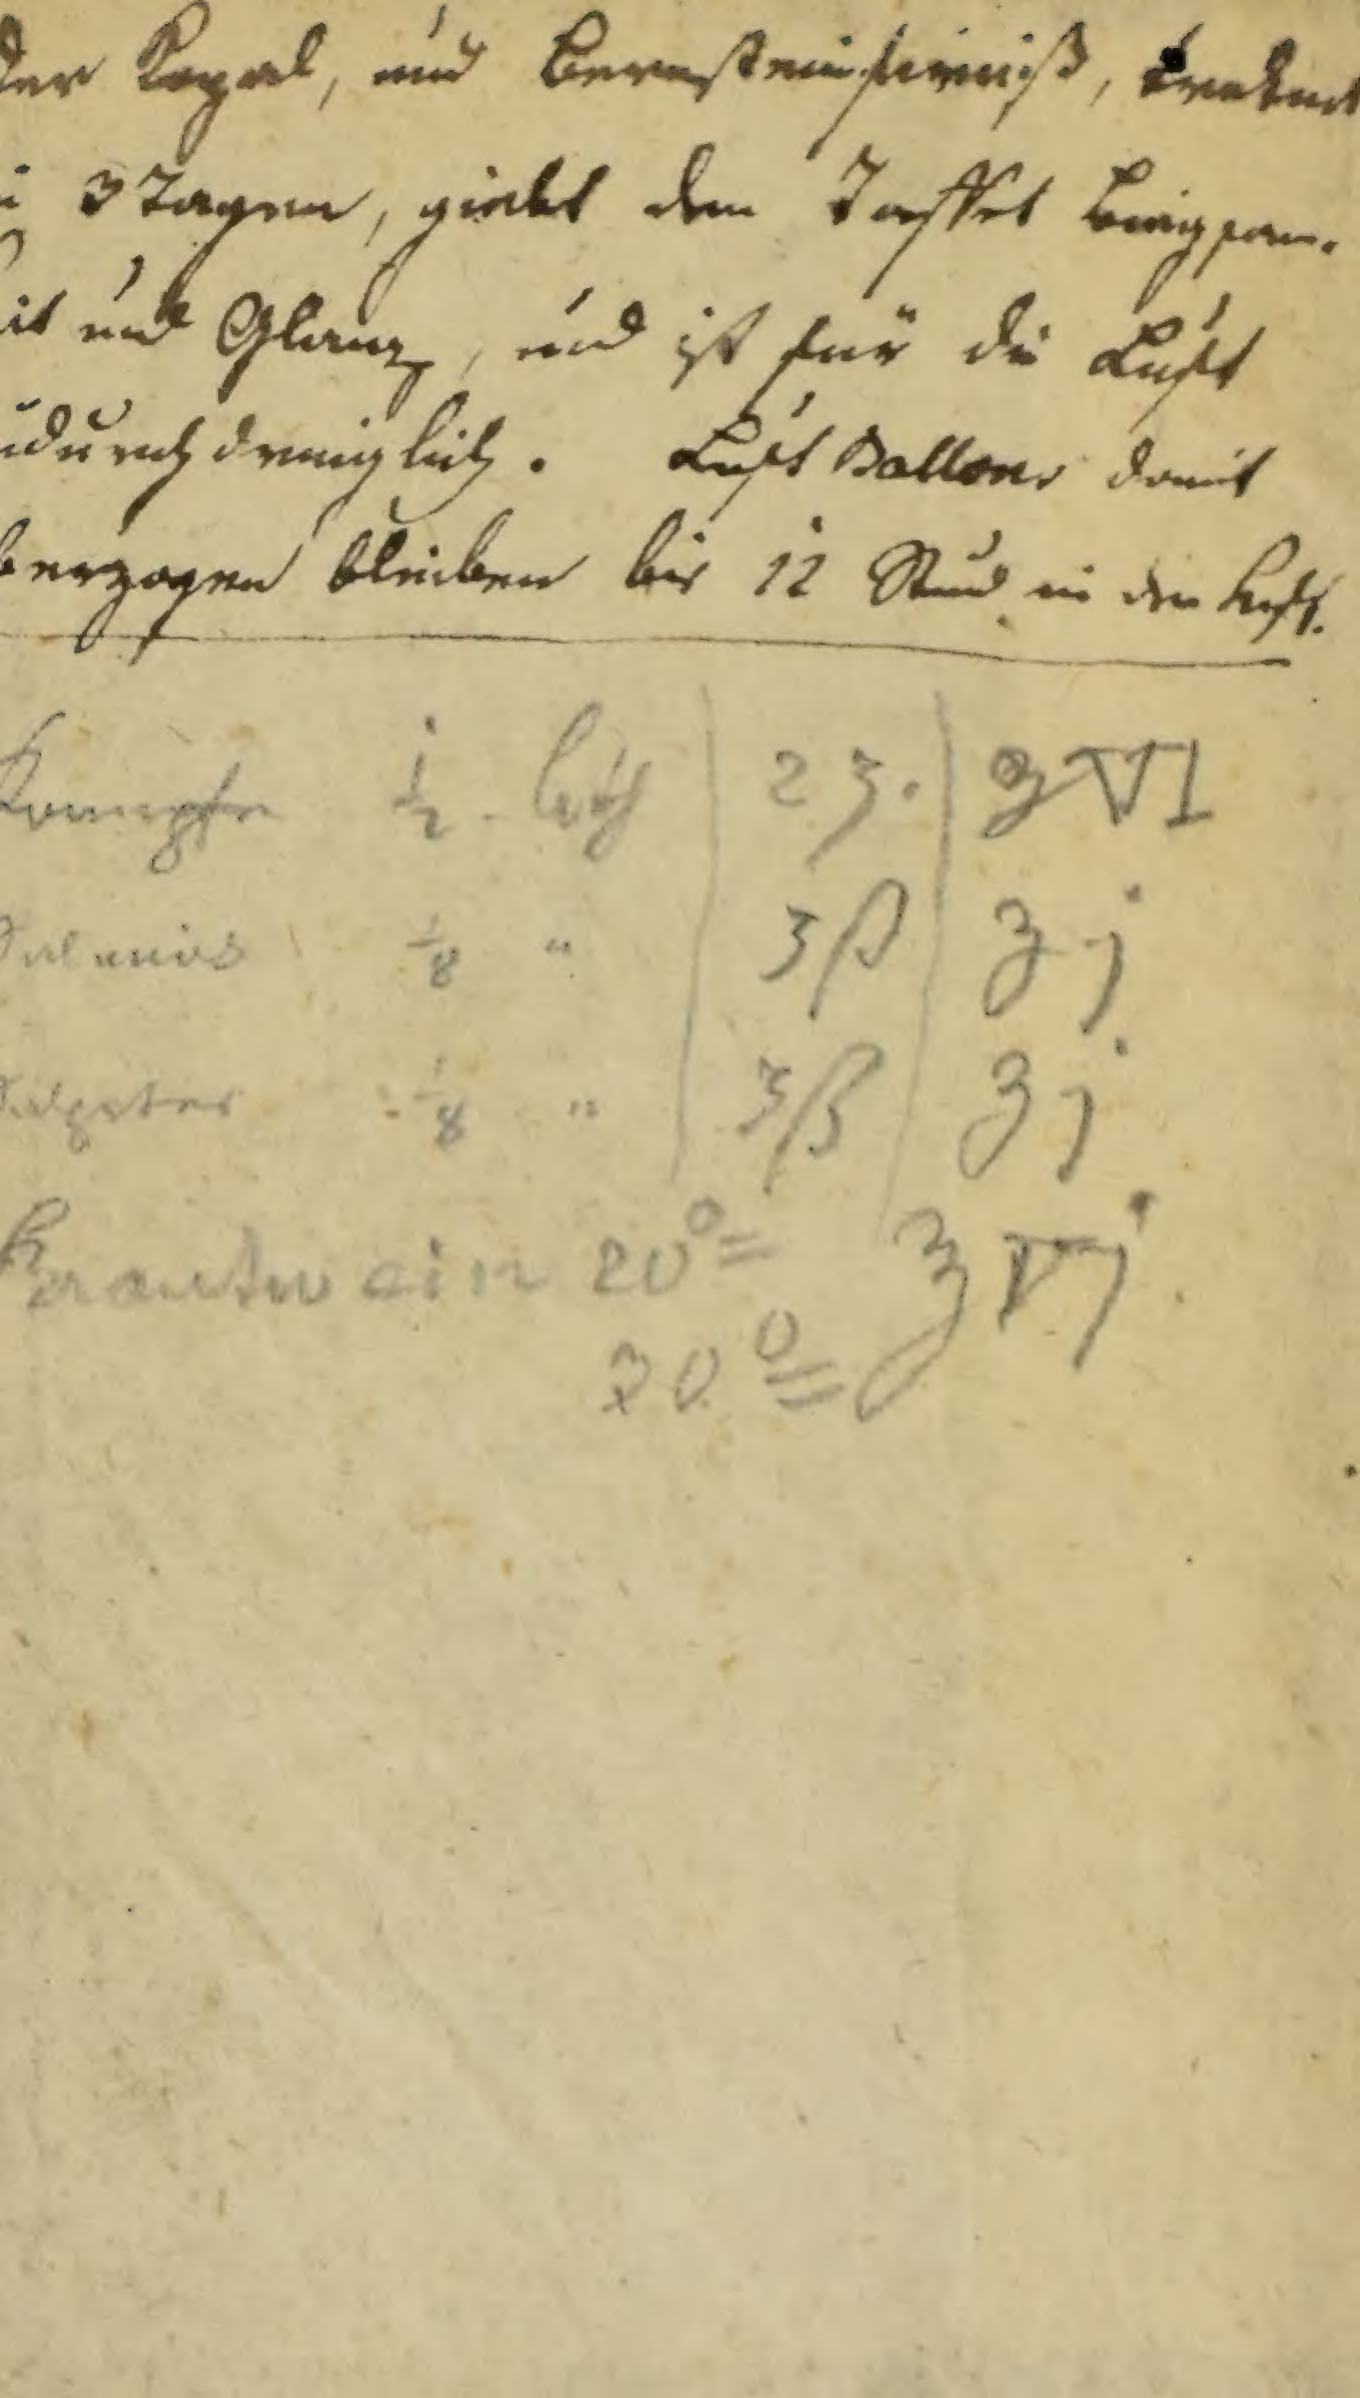 der Kopal, und Bernsteinfirniß, troknet
3 Tagen, giebt dem Taffet Biegsam-
it und Glanz, und ist für die Luft
ndurchdringlich. Luft Ballons damit
berzogen bleiben bis 12 Stund in der Luft.
Kampfer ½ loth 2 ʒ. ʒ VI
Salmiak ⅛ " ʒ ß ʒ j
Salpeter ⅛ " ʒ ß ʒ j
Brantwein 20° = ℥ Vj
30° =